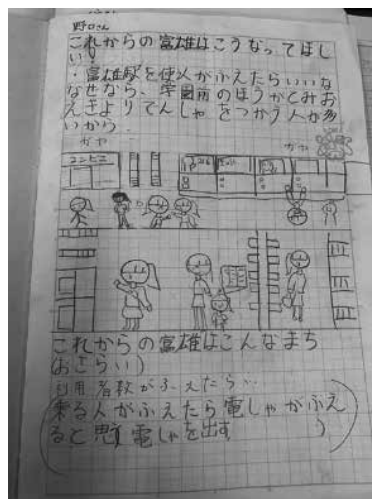 野口さん
これからの富雄はこうなってほし
い!
・富雄駅を使人がふえたらいいな
なぜなら、学園前のほうがとみお
えきよりでんしゃをつかう人が多
いから。
ガヤ
ガヤ
コンビニ
これからの富雄はこんなまち
(おさらい)
利用者数がふえたら…
乗る人がふえたら電しゃがふえ
ると思う 電しゃを出す